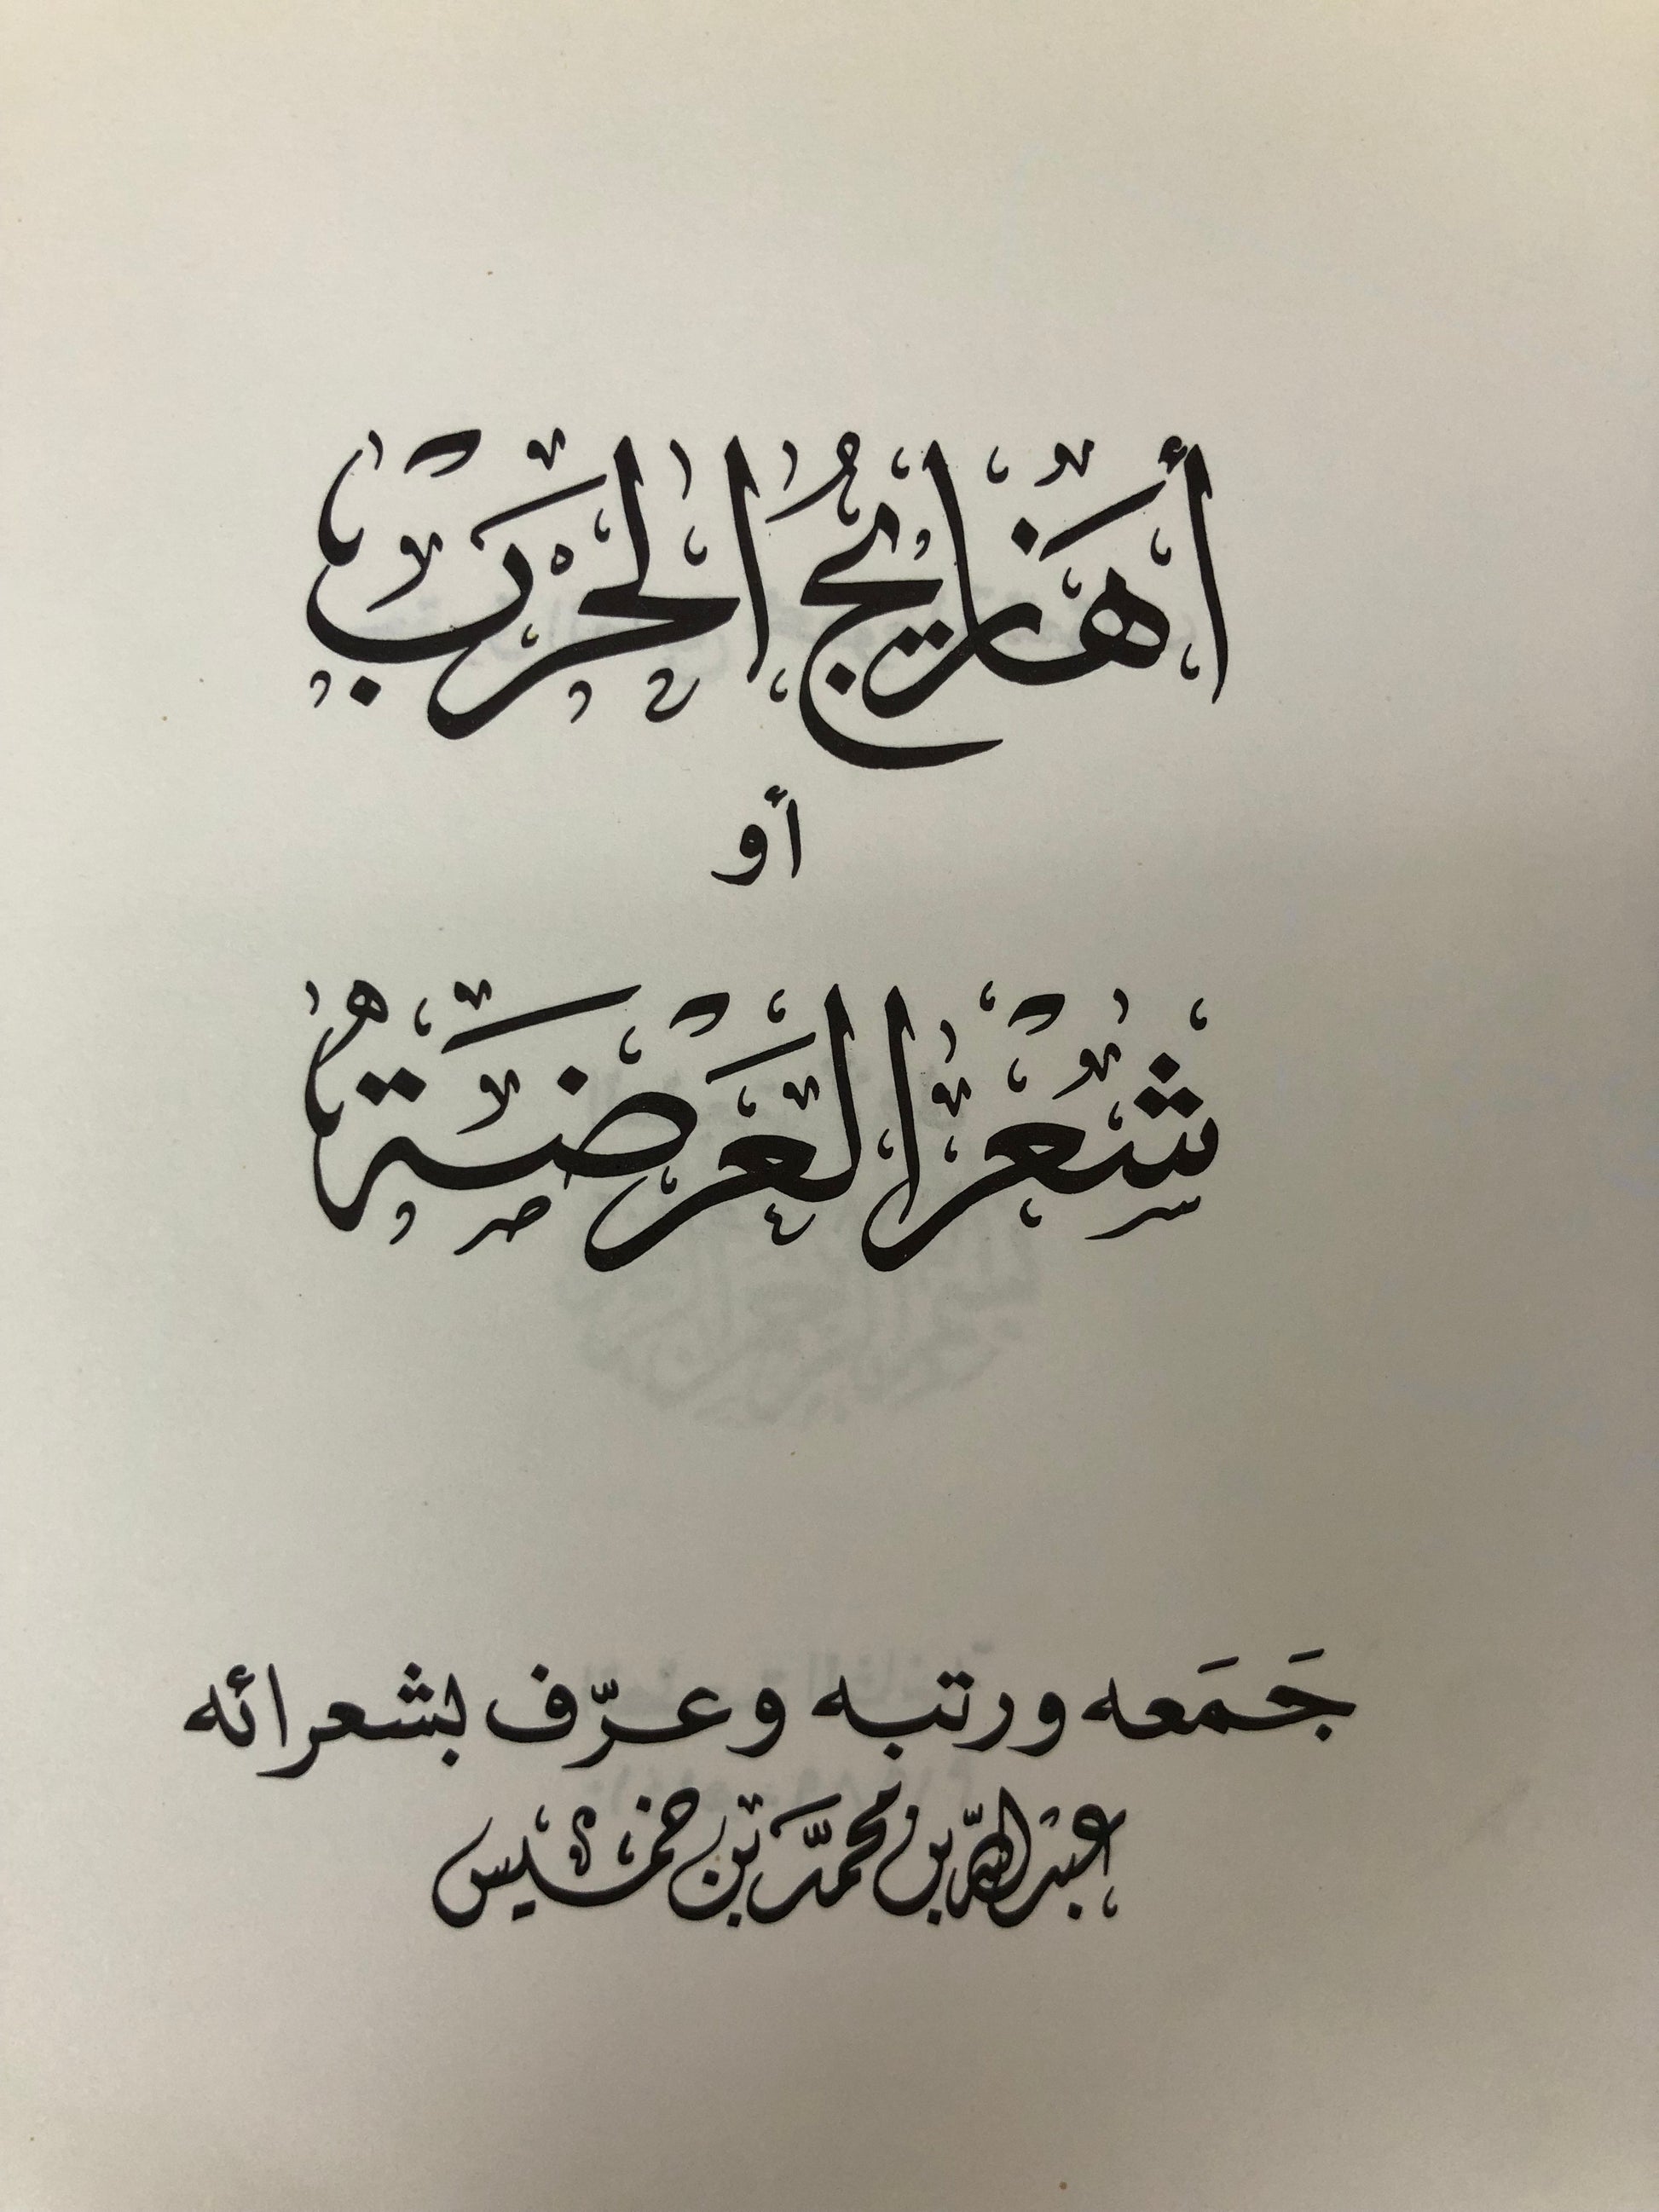 أَهَازِيجُ الحَرْبِ
أو
شِعْرُ العَرْضَةِ
جَمَعه ورتبه وعرّف بشعرائه
عبد الله بن محمد بن خميس